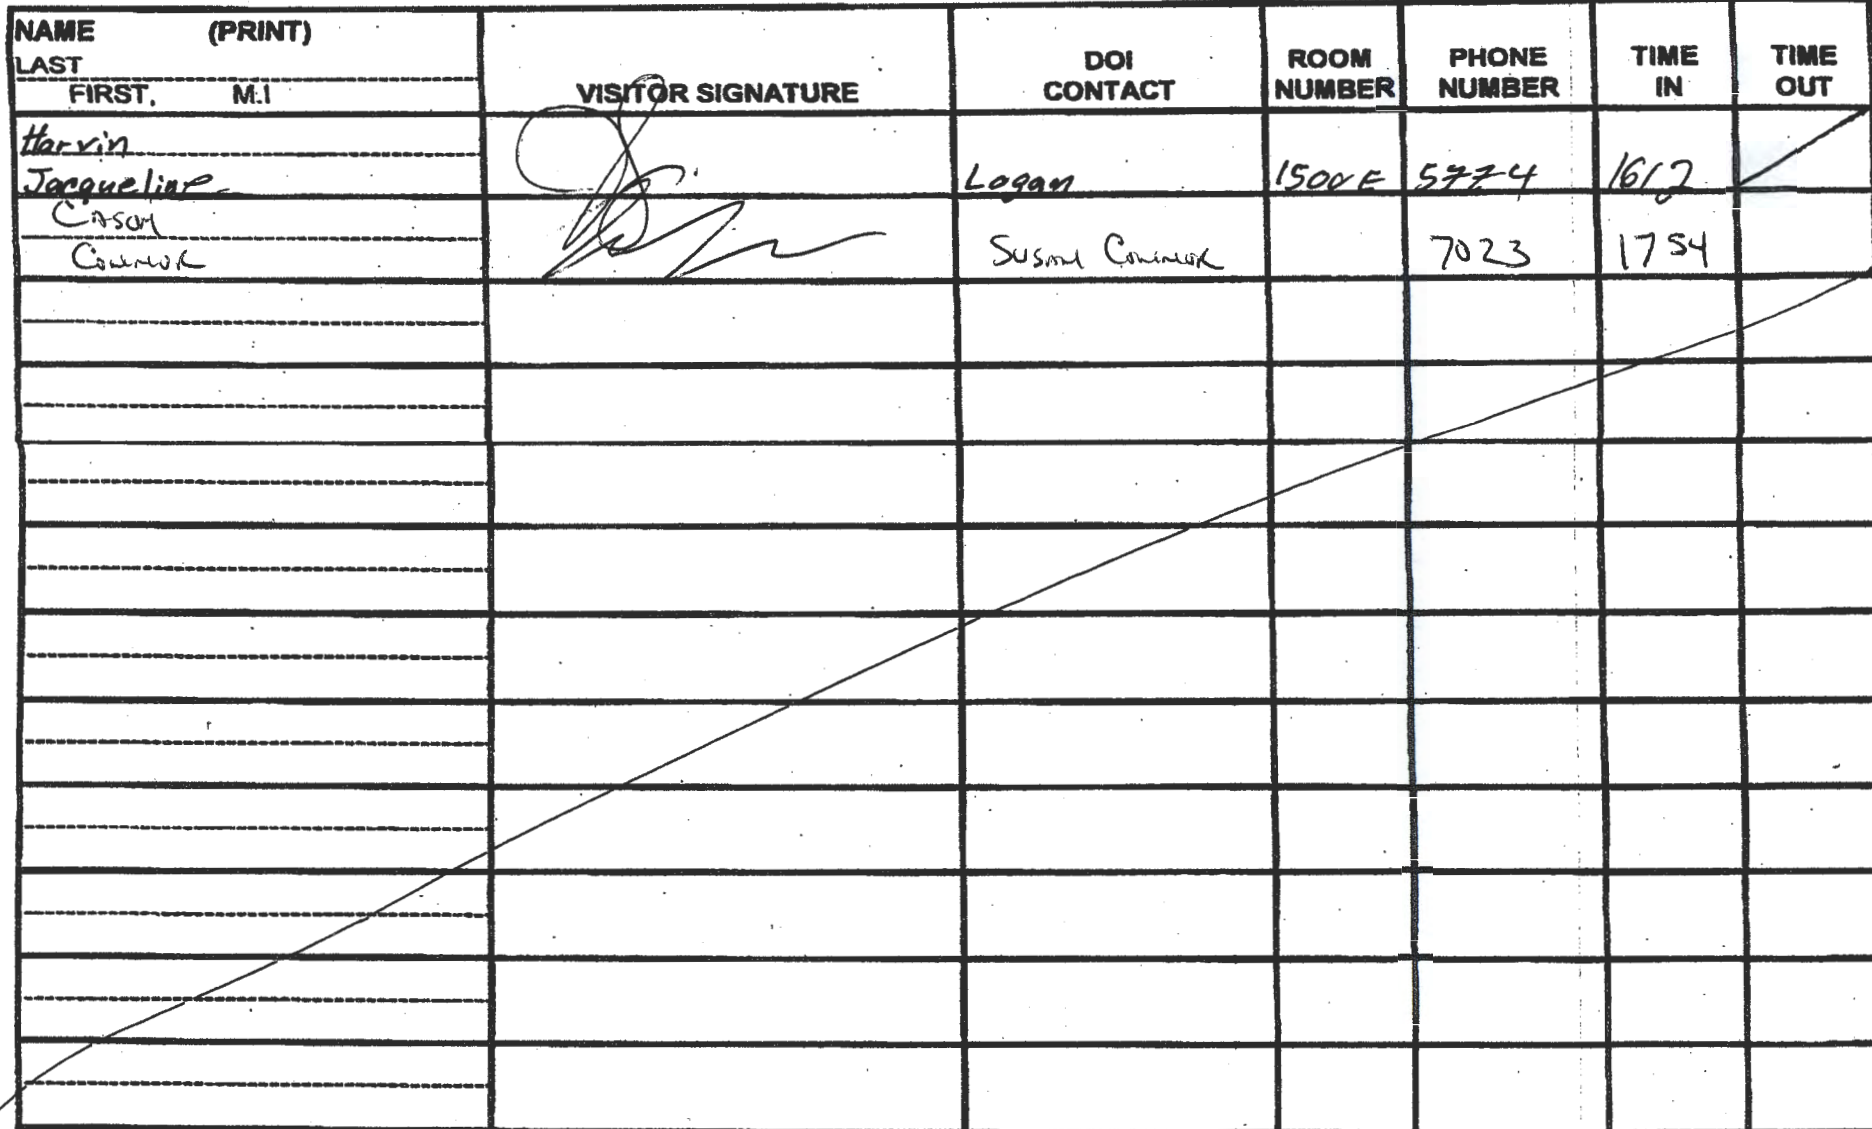 NAME (PRINT)
LAST
FIRST, M.I
VISITOR SIGNATURE
DOI CONTACT
ROOM NUMBER
PHONE NUMBER
TIME IN
TIME OUT
Harvin
Jacqueline Logan 1500E 5774 1612
Cason
Connor Susan Connor 7023 1754